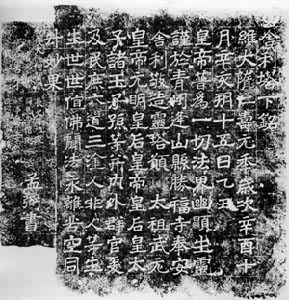 舍利塔下銘
維大隋仁壽元年歲次辛酉十
月辛亥朔十五日乙丑
皇帝普為一切法界幽顯生靈
謹於青州逢山縣勝福寺奉安
舍利敬造靈塔願 太祖武元
皇帝元明皇后皇帝皇后皇太
子諸王子孫等并內外群官爰
及民庶六道三塗人非人等生
生世世值佛聞法永離苦空同
昇妙果
孟弼書